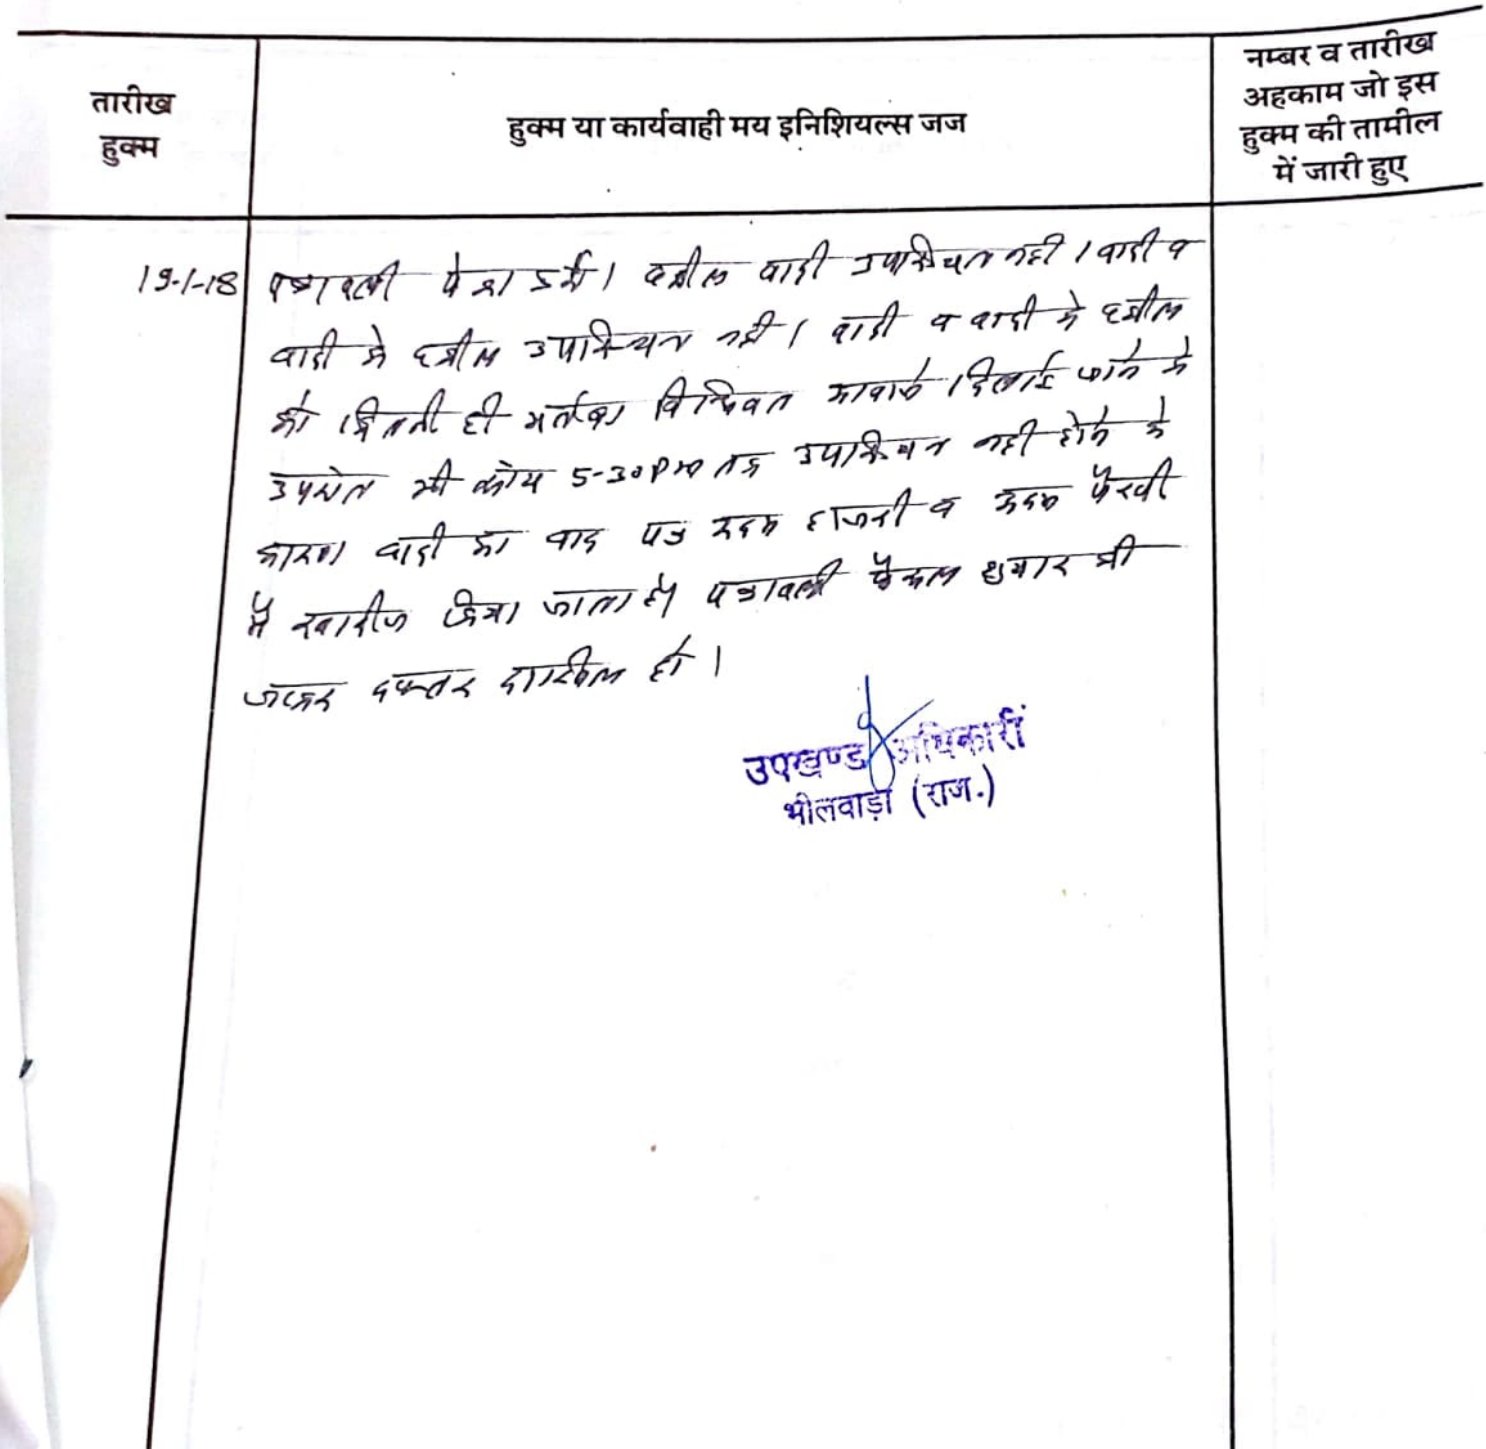 तारीख
हुक्म
हुक्म या कार्यवाही मय इनिशियल्स जज
नम्बर व तारीख
अहकाम जो इस
हुक्म की तामील
में जारी हुए
19-1-18
पत्रावली पेश हुई। वकील वादी उपस्थित नही। वादी व
वादी के वकील उपस्थित नही। वादी व वादी के वकील
को कितनी ही मर्तबा विधिवत आवाजे दिलाई जाने के
उपरांत भी 5-30 PM तक उपस्थित नही होने के
कारण वादी का वाद पत्र अदम हाजरी व अदम पैरवी
मे खारीज किया जाता है। पत्रावली फैसल शुमार की
जाकर दफ्तर दाखिल हो।
उपखण्ड अधिकारी
भीलवाड़ा (राज.)